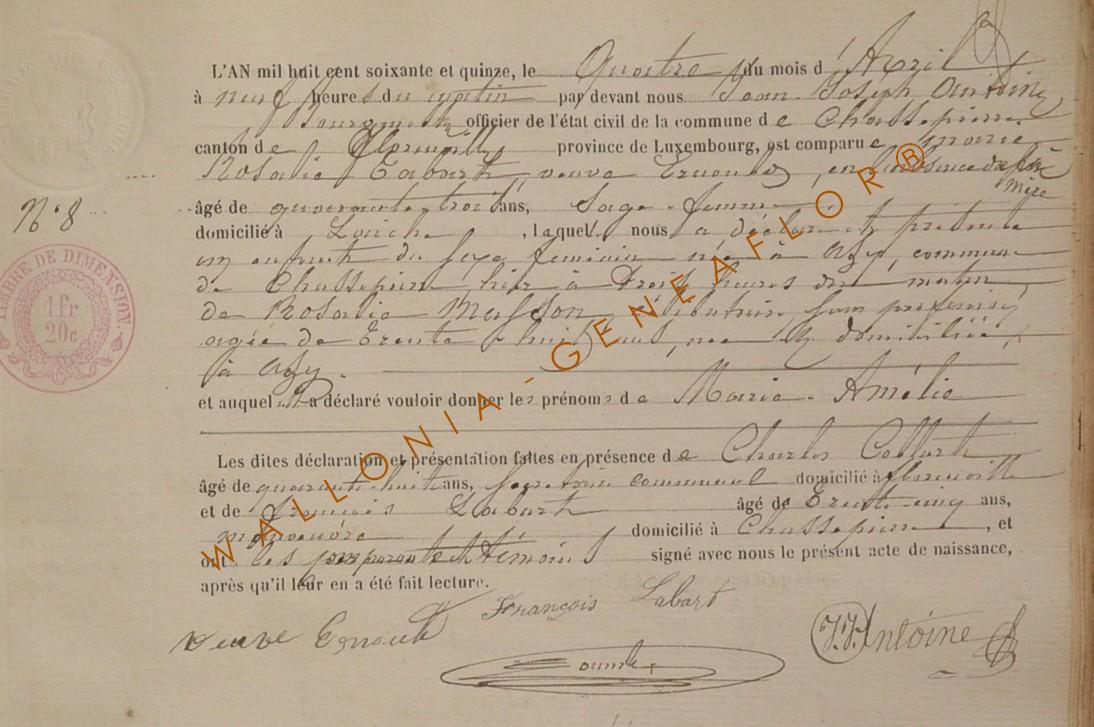 L'AN mil huit cent soixante et quinze, le Quatre du mois d'Avril
à neuf heures du matin par devant nous Jean Joseph Antoine
Bourgmestre officier de l'état civil de la commune de Chassepierre
canton de Florenville province de Luxembourg, est comparue Marie
Rosalie Labart, veuve Ernould, en l'absence du père
N° 8
âgé de quarante trois ans, Sage-femme
domicilié à Laiche, laquelle nous a déclaré et présenté
un enfant du sexe féminin née à Azy, commune
de Chassepierre hier à trois heures du matin
de Rosalie Masson, célibataire, sans profession,
agée de trente huit ans, née et domiciliée,
à Azy.
et auquel a déclaré vouloir donner les prénoms de Marie-Amélie
Les dites déclaration et présentation faites en présence de Charles
âgé de quarante huit ans, Secrétaire communal domicilié à Florenville
et de François Labart âgé de trente-cinq ans,
manoeuvre domicilié à Chassepierre, et
ont les comparante et témoins signé avec nous le présent acte de naissance,
après qu'il leur en a été fait lecture.
François Labart
veuve Ernould
J.J. Antoine
TIMBRE DE DIMENSION.
1 fr
20 c
WALLONIA-GENEAFLOR®